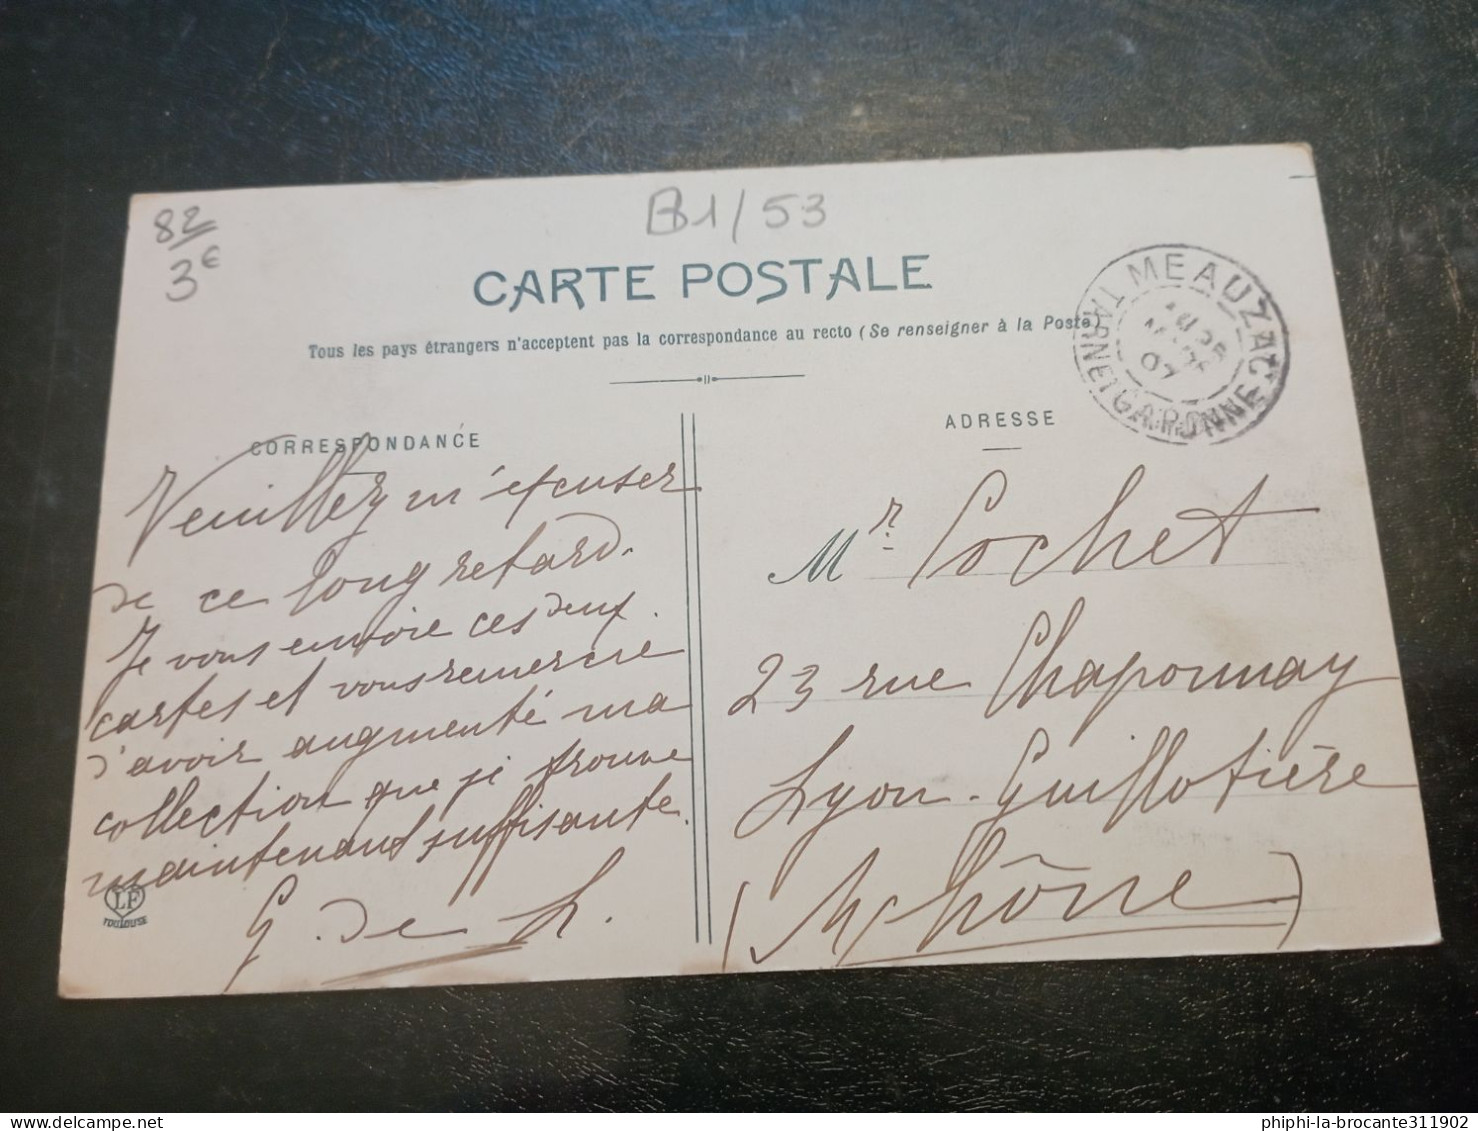 82
3€
B1/53
CARTE POSTALE
Tous les pays étrangers n'acceptent pas la correspondance au recto (Se renseigner à la Poste)
CORRESPONDANCE
Veuillez m'excuser
de ce long retard.
Je vous envoie ces deux
cartes et vous remercie
d'avoir augmenté ma
collection que je trouve
maintenant suffisante.
G. de L.
LF
TOULOUSE
ADRESSE
MEAUZAC
TARN ET GARONNE
07
Mr. Cochet
23 rue Chaponnay
Lyon-Guillotière
(Rhône)
phiphi-la-brocante311902